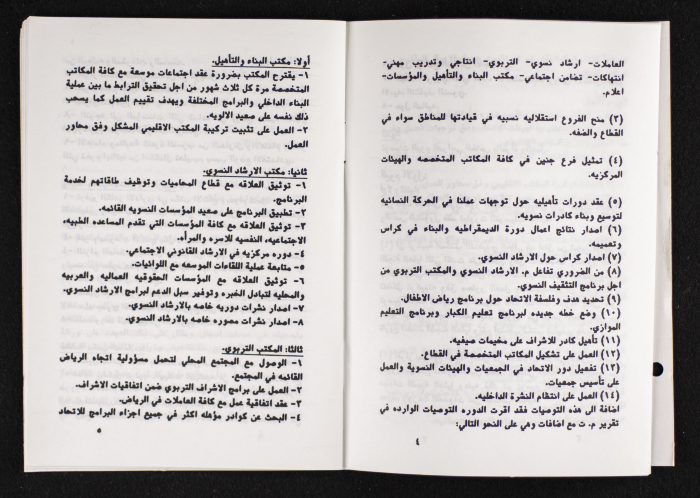 العاملات- ارشاد نسوي- التربوي- انتاجي وتدريب مهني-
انتهاكات- تضامن اجتماعي- مكتب البناء والتأهيل والمؤسسات-
اعلام.
(٣) منح الفروع استقلاليه نسبيه في قيادتها للمناطق سواء في
القطاع والضفه.
(٤) تمثيل فرع جنين في كافة المكاتب المتخصصه والهيئات
المركزيه.
(٥) عقد دورات تأهيليه حول توجهات عملنا في الحركة النسائيه
لتوسيع وبناء كادرات نسويه.
(٦) اصدار نتائج اعمال دورة الديمقراطيه والبناء في كراس
وتعميمه.
(٧) اصدار كراس حول الارشاد النسوي.
(٨) من الضروري تفاعل م. الارشاد النسوي والمكتب التربوي من
اجل برنامج التثقيف النسوي.
(٩) تحديد هدف وفلسفة الاتحاد حول برنامج رياض الاطفال.
(١٠) وضع خطه جديده لبرنامج تعليم الكبار وبرنامج التعليم
الموازي.
(١١) تأهيل كادر للاشراف على مخيمات صيفيه.
(١٢) العمل على تشكيل المكاتب المتخصصة في القطاع.
(١٣) تفعيل دور الاتحاد في الجمعيات والهيئات النسوية والعمل
على تأسيس جمعيات.
(١٤) العمل على انتظام النشرة الداخليه.
اضافة الى هذه التوصيات فقد اقرت الدوره التوصيات الوارده في
تقرير م. ت مع اضافات وهي على النحو التالي:
٤
أولا: مكتب البناء والتأهيل.
١- يقترح المكتب بضرورة عقد اجتماعات موسعة مع كافة المكاتب
المتخصصة مرة كل ثلاث شهور من اجل تحقيق الترابط ما بين عملية
البناء الداخلي والبرامج المختلفة وبهدف تقييم العمل كما يسحب
ذلك نفسه على صعيد الالويه.
٢- العمل على تثبيت تركيبة المكتب الاقليمي المشكل وفق محاور
العمل.
ثانيا: مكتب الارشاد النسوي.
١- توثيق العلاقه مع قطاع المحاميات وتوظيف طاقاتهم لخدمة
البرنامج.
٢- تطبيق البرنامج على صعيد المؤسسات النسويه القائمه.
٣- توثيق العلاقه مع كافة المؤسسات التي تقدم المساعده الطبيه،
الاجتماعيه، النفسيه للاسره والمرأه.
٤- دوره مركزيه في الارشاد القانوني الاجتماعي.
٥- متابعة عملية اللقاءات الموسعه مع اللوائيات.
٦- توثيق العلاقه مع المؤسسات الحقوقيه العماليه والعربيه
والمحليه لتبادل الخبره وتوفير سبل الدعم لبرامج الارشاد النسوي.
٧- اصدار نشرات دوريه خاصه بالارشاد النسوي.
٨- اصدار نشرات مصوره خاصه بالارشاد النسوي.
ثالثا: المكتب التربوي.
١- الوصول مع المجتمع المحلي لتحمل مسؤولية اتجاه الرياض
القائمه في المجتمع.
٢- العمل على برامج الاشراف التربوي ضمن اتفاقيات الاشراف.
٣- عقد اتفاقية عمل مع كافة العاملات في الرياض.
٤- البحث عن كوادر مؤهله اكثر في جميع اجزاء البرامج للاتحاد
٥